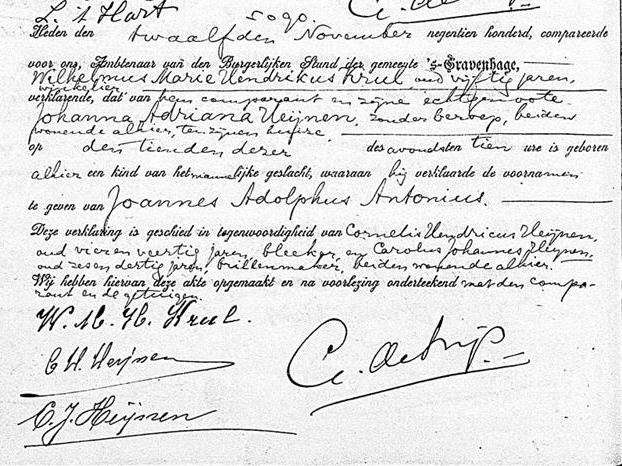 L. 't Hart
5090.
Heden den twaalfden November negentien honderd, compareerde
voor ons, Ambtenaar van den Burgerlijken Stand der gemeente 's-Gravenhage,
Wilhelmus Marie Hendrikus Krul, oud vijftig jaren,
winkelier,
verklarende, dat van hem comparant en zijne echtgenoote
Johanna Adriana Heijnen, zonder beroep, beiden
wonende alhier, ten zijnen huize,
op den tienden dezer des avonds ten tien ure is geboren
alhier een kind van het mannelijke geslacht, waaraan hij verklaarde de voornamen
te geven van Joannes Adolphus Antonius.
Deze verklaring is geschied in tegenwoordigheid van Cornelis Hendricus Heijnen,
oud vier en veertig jaren, bleeker, en Carolus Johannes Heijnen,
oud zes en dertig jaren, brillenmaker, beiden wonende alhier.
Wij hebben hiervan deze akte opgemaakt en na voorlezing onderteekend met den compa-
rant en de getuigen.
W. M. H. Krul.
C H. Heijnen
C. J. Heijnen